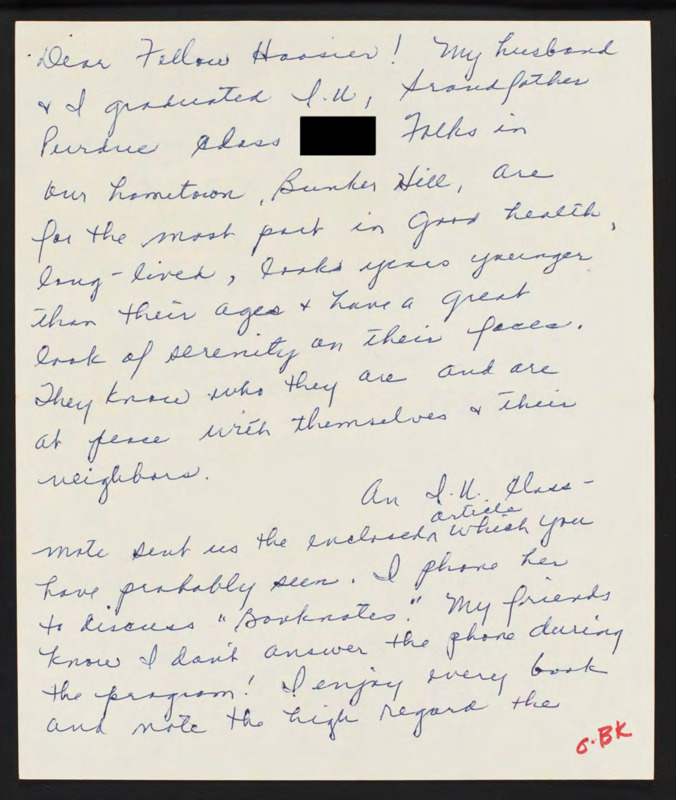 Dear Fellow Hoosier! My husband
& I graduated I.U., Grandfather
Purdue Class
Folks in
our hometown, Bunker Hill, are
for the most part in good health,
long-lived, looks years younger
than their ages & have a great
look of serenity on their faces.
They know who they are and are
at peace with themselves & their
neighbors.
An I.U. Class-
mate sent us the enclosed article which you
have probably seen. I phone her
to discuss "Booknotes." My friends
know I don't answer the phone during
the program! I enjoy every book
and note the high regard the
o-BK